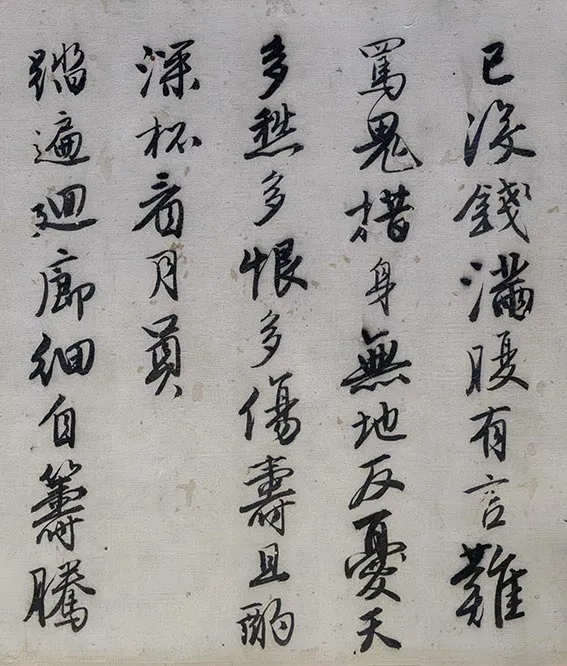 已沒錢滿腰有言難
罵鬼措身無地反憂天
多愁多恨多傷壽且酌
深杯看月員
踏遍迴廊細自籌騰